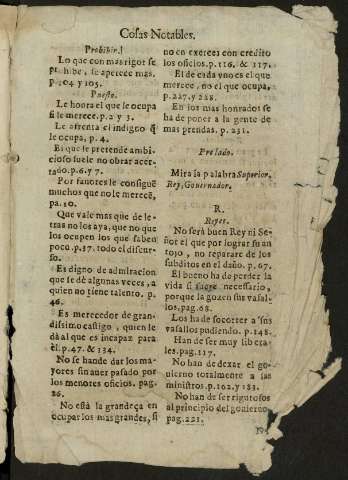 Cosas Notables.
Prohibir.
Lo que con mas rigor se
prohibe, se apetece mas.
p. 104 y 105.
Puesto.
Le honra el que le ocupa
si le merece. p. 2 y 3.
Le afrenta el indigno q̃
le ocupa, p. 4.
El que se pretende ambi-
cioso suele no obrar acer-
tado. p. 6. y 7.
Por favores le consiguẽ
muchos que no le merecẽ,
pa. 10.
Que vale mas que de le-
tras no los aya, que no que
los ocupen los que saben
poco. p. 37. todo el discur-
so.
Es digno de admiracion
que se dè algunas veces, a
quien no tiene talento. p.
46.
Es merecedor de gran-
dissimo castigo, quien le
dà al que es incapaz para
èl. p. 47. & 134.
No se hande dar los ma-
yores sin aver pasado por
los menores oficios. pag.
26.
No està la grandeça en
ocupar los mas grandes, si
no en exercer con credito
los oficios. p. 116. & 117.
El de cada vno es el que
merece, no el que ocupa,
p. 227. y 228.
En los mas honrados se
ha de poner a la gente de
mas prendas. p. 231.
Prelado.
Mira la palabra Superior,
Rey, Governador.
R.
Reyes.
No serà buen Rey ni Se-
ñor el que por lograr su an
tojo, no reparare de los
subditos en el daño. p. 67.
El bueno ha de perder la
vida si fuere necessario,
porque la gozen sus vasal-
los. pag. 68.
Los ha de socorrer a sus
vasallos pudiendo. p. 148.
Han de ser muy libera-
les. pag. 117.
No han de dexar el go-
uierno totalmente a las
ministros. p. 162. y 183.
No han de ser rigurosos
al principio del gonierno
pag. 221.